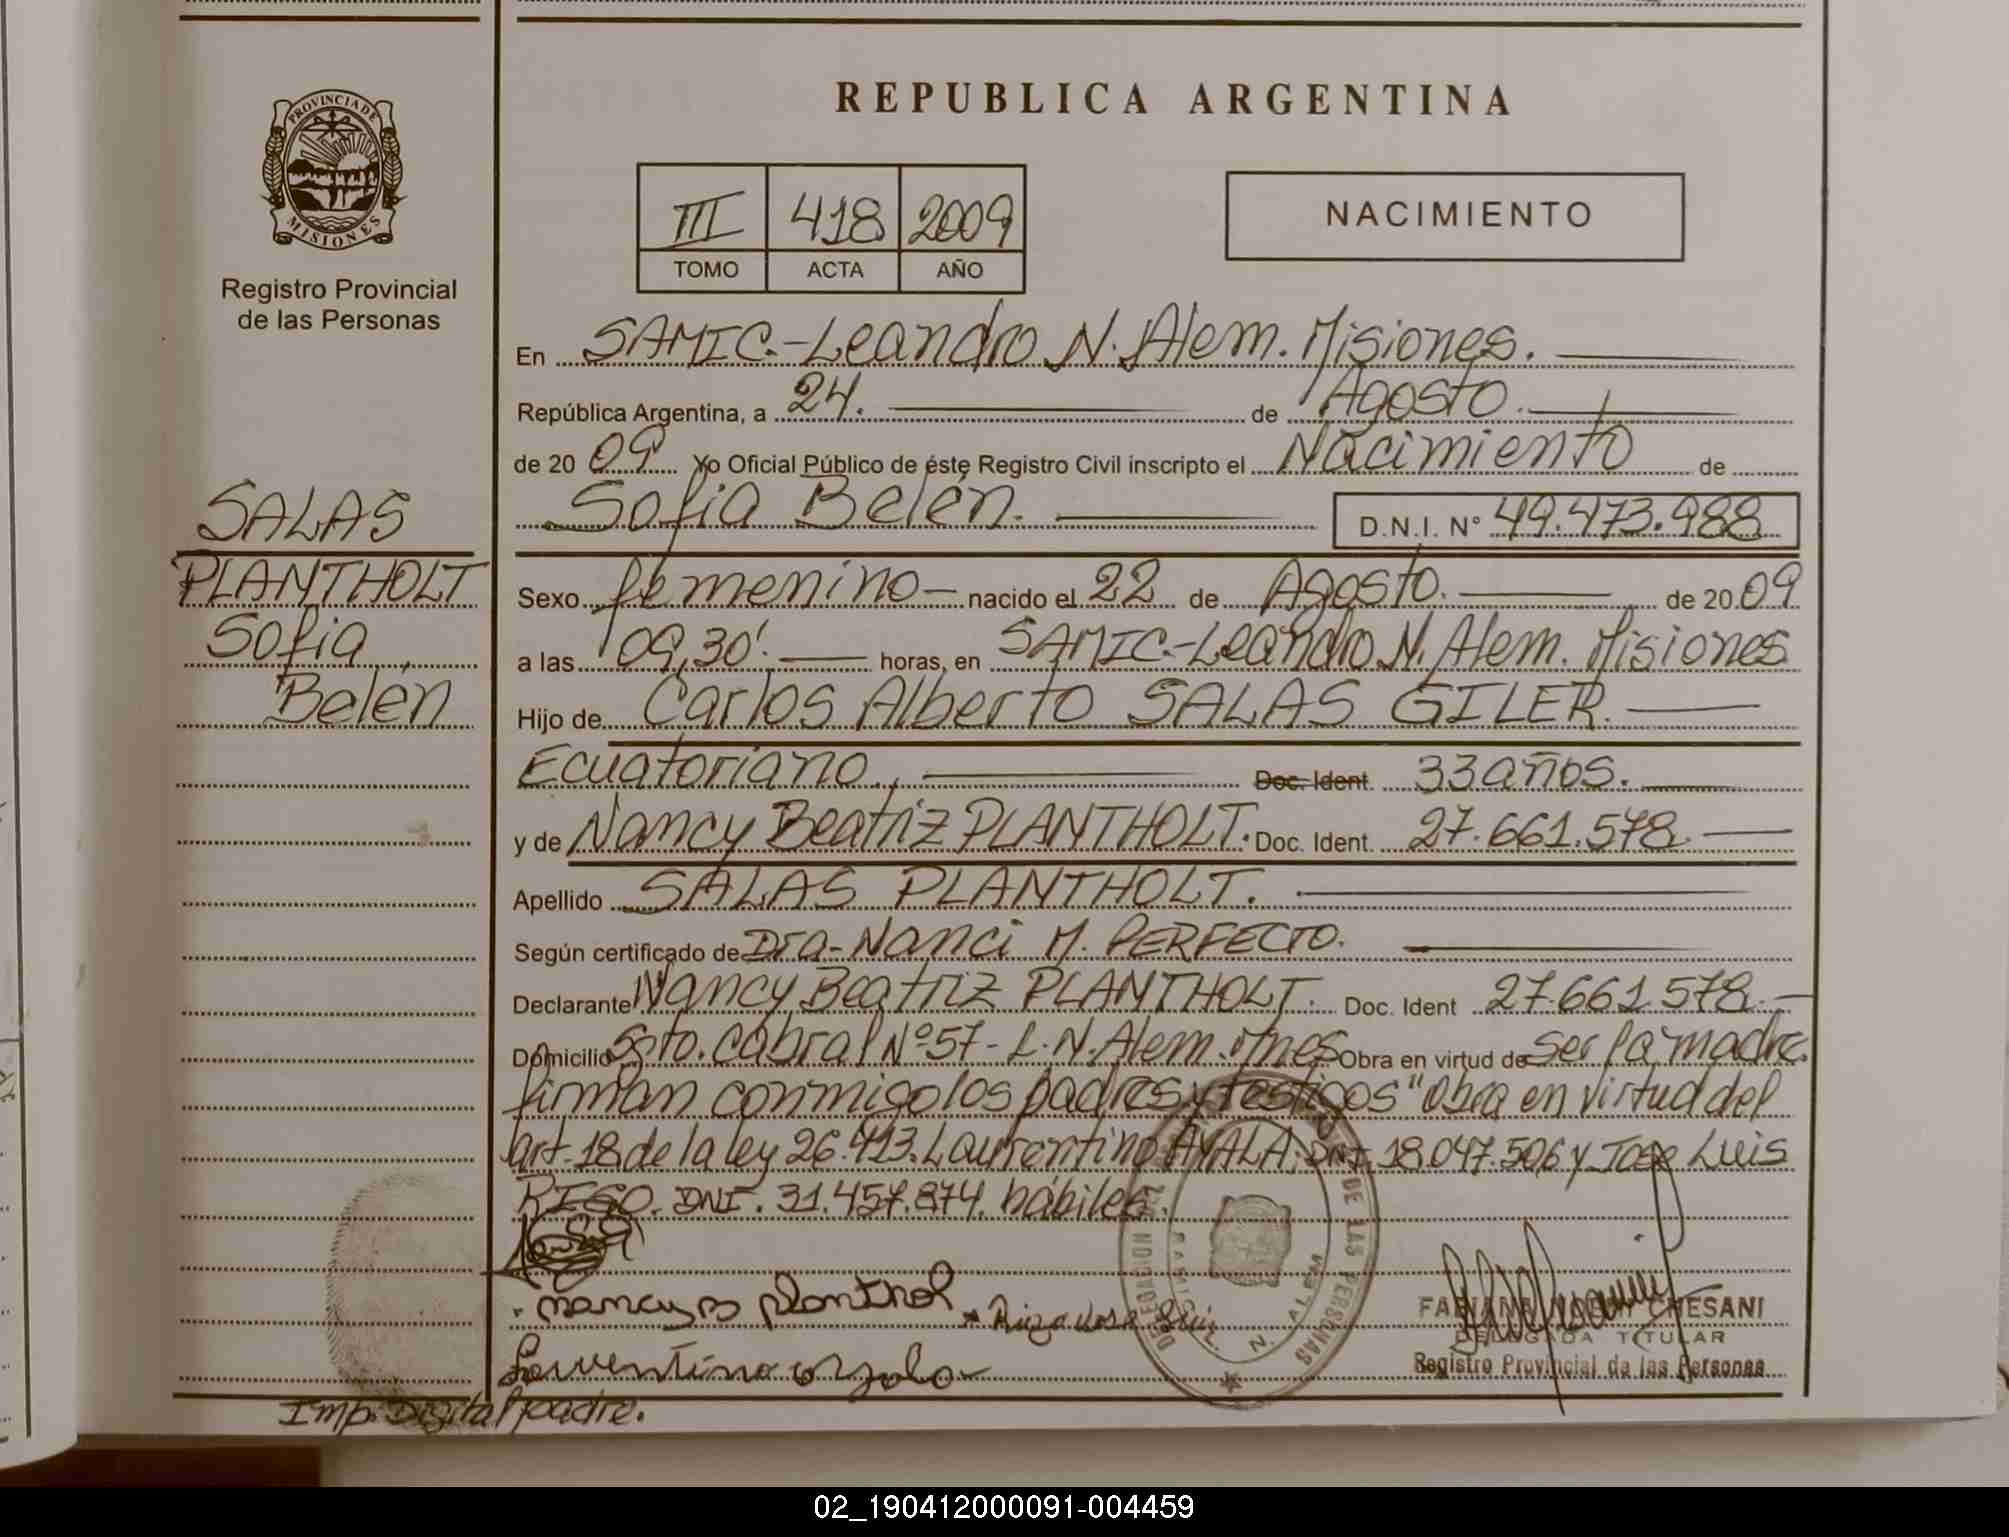 PROVINCIA DE
MISIONES
Registro Provincial
de las Personas
SALAS
PLANTHOLT
Sofia
Belén
REPUBLICA ARGENTINA
III 418 2009
TOMO ACTA AÑO
NACIMIENTO
En SAMIC.-Leandro N. Alem. Misiones.
República Argentina, a 24. de Agosto.
de 20 09 Yo Oficial Público de éste Registro Civil inscripto el Nacimiento de
Sofia Belén. D.N.I. N° 49.473.988
Sexo femenino - nacido el 22 de Agosto. de 20 09
a las 09,30'. horas, en SAMIC.-Leandro N. Alem. Misiones
Hijo de Carlos Alberto SALAS GILER.
Ecuatoriano., Doc. Ident 33 años.
y de Nancy Beatriz PLANTHOLT. Doc. Ident. 27.661.578
Apellido SALAS PLANTHOLT.
Según certificado de Dra- Nanci M. PERFECTO.
Declarante Nancy Beatriz PLANTHOLT. Doc. Ident 27.661.578.-
Domicilio Sgto. Cabral N° 57- L.N. Alem. Mnes Obra en virtud de ser la madre.
firman conmigo los padres y testigos "Obra en virtud del
art. 18 de la ley 26.413. Laurentino AYALA. DNI. 18.047.506 y Jose Luis
DNI. 31.457.874. hábiles.
nancy B planthol
FABIANA CHESANI
DELEGADA TITULAR
Registro Provincial de las Personas
DELEGACION DE LAS PERSONAS
N. ALEM
Imp. Digital padre.
02_190412000091-004459